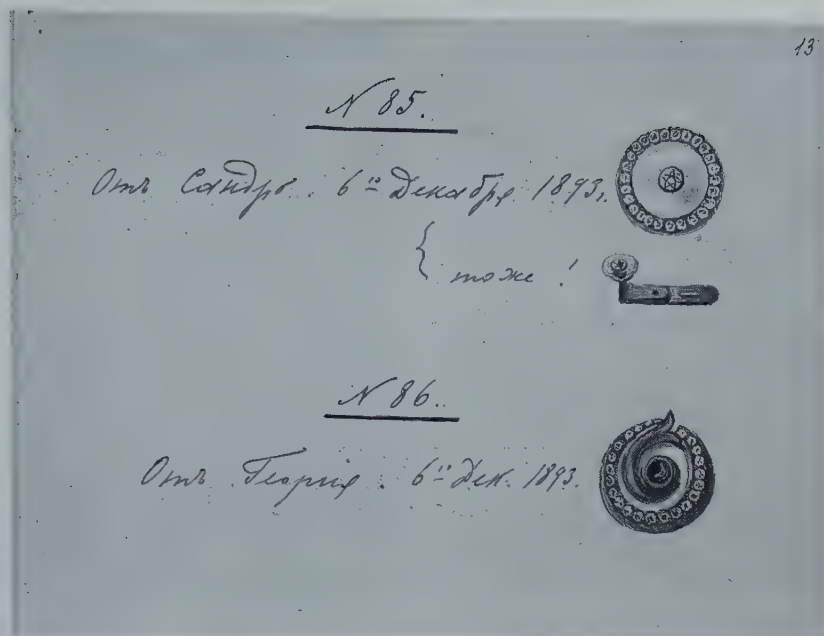 13
N 85.
Отъ Сандро. 6го Декабря 1893.
{ тоже !
N 86.
Отъ Георгія. 6го Дек. 1893.